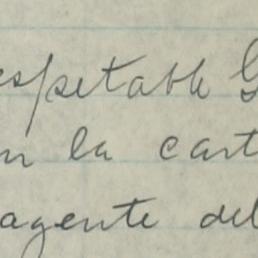 espetable G
en la cart
agente del